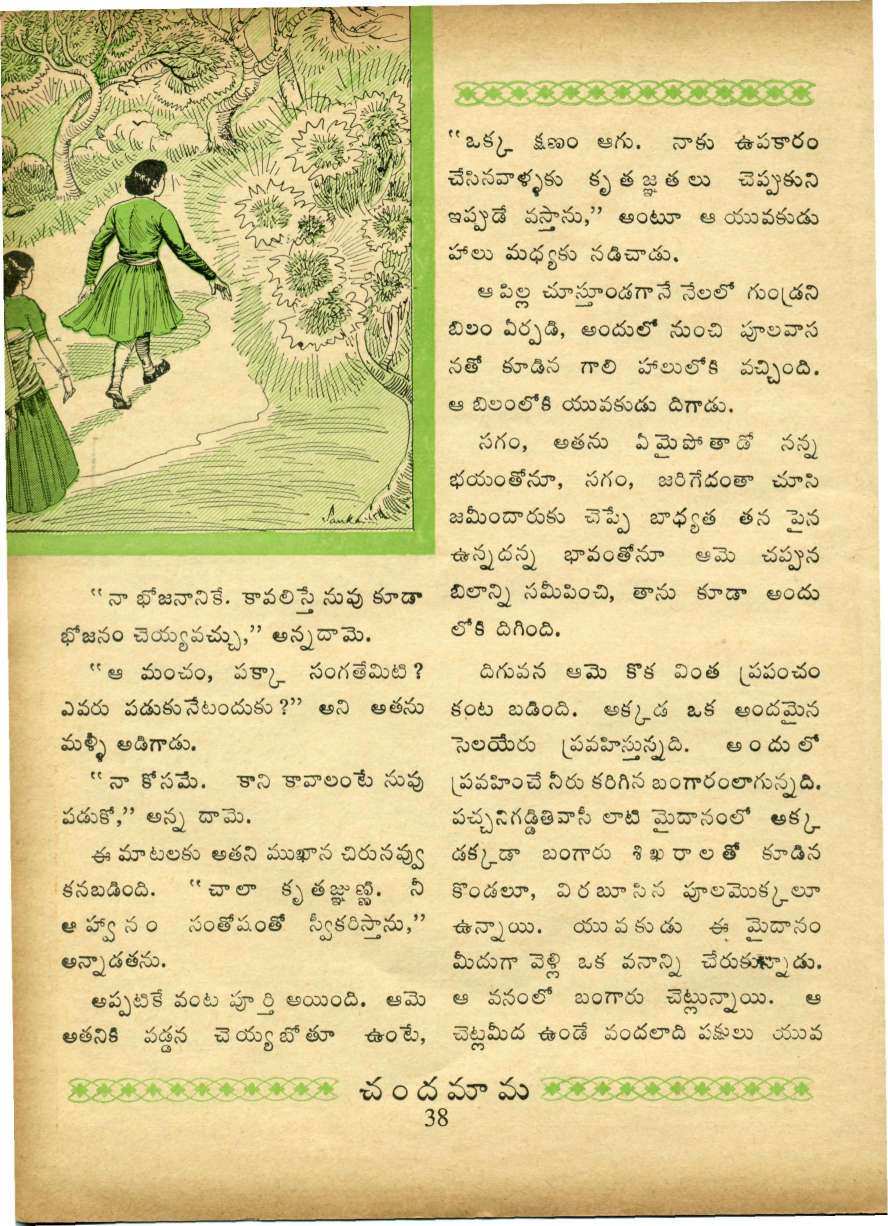 “నా భోజనానికే. కావలిస్తే నువు కూడా
భోజనం చెయ్యవచ్చు,” అన్నదామె.
“ఆ మంచం, పక్కా సంగతేమిటి?
ఎవరు పడుకునేటందుకు?” అని అతను
మళ్ళీ అడిగాడు.
“నా కోసమే. కాని కావాలంటే నువు
పడుకో,” అన్న దామె.
ఈ మాటలకు అతని ముఖాన చిరునవ్వు
కనబడింది. “చాలా కృతజ్ఞుణ్ణి. నీ
ఆహ్వానం సంతోషంతో స్వీకరిస్తాను,”
అన్నాడతను.
అప్పటికే వంట పూర్తి అయింది. ఆమె
అతనికి వడ్డన చెయ్యబోతూ ఉంటే,
“ఒక్క క్షణం ఆగు. నాకు ఉపకారం
చేసినవాళ్ళకు కృతజ్ఞతలు చెప్పుకుని
ఇప్పుడే వస్తాను,” అంటూ ఆ యువకుడు
హాలు మధ్యకు నడిచాడు.
ఆ పిల్ల చూస్తూండగానే నేలలో గుండ్రని
బిలం ఏర్పడి, అందులో నుంచి పూలవాస
నతో కూడిన గాలి హాలులోకి వచ్చింది.
ఆ బిలంలోకి యువకుడు దిగాడు.
సగం, అతను ఏమైపోతాడో నన్న
భయంతోనూ, సగం, జరిగేదంతా చూసి
జమీందారుకు చెప్పే బాధ్యత తన పైన
ఉన్నదన్న భావంతోనూ ఆమె చప్పున
బిలాన్ని సమీపించి, తాను కూడా అందు
లోకి దిగింది.
దిగువన ఆమె కొక వింత ప్రపంచం
కంట బడింది. అక్కడ ఒక అందమైన
సెలయేరు ప్రవహిస్తున్నది. అందులో
ప్రవహించే నీరు కరిగిన బంగారంలాగున్నది.
పచ్చనిగడ్డితివాసీ లాటి మైదానంలో అక్క
డక్కడా బంగారు శిఖరాలతో కూడిన
కొండలూ, విరబూసిన పూలమొక్కలూ
ఉన్నాయి. యువకుడు ఈ మైదానం
మీదుగా వెళ్లి ఒక వనాన్ని చేరుకున్నాడు.
ఆ వనంలో బంగారు చెట్లున్నాయి. ఆ
చెట్లమీద ఉండే వందలాది పక్షులు యువ
చందమామ
38